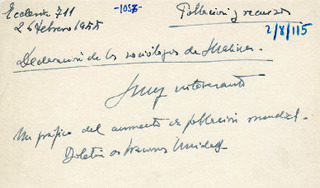 Ecclesia 711
26 Febrero 1955
-1058-
Población y recursos
2/8/115
Declaración de los sociólogos de Malinas
Muy interesante
Un gráfico del aumento de población mundial.
Boletín